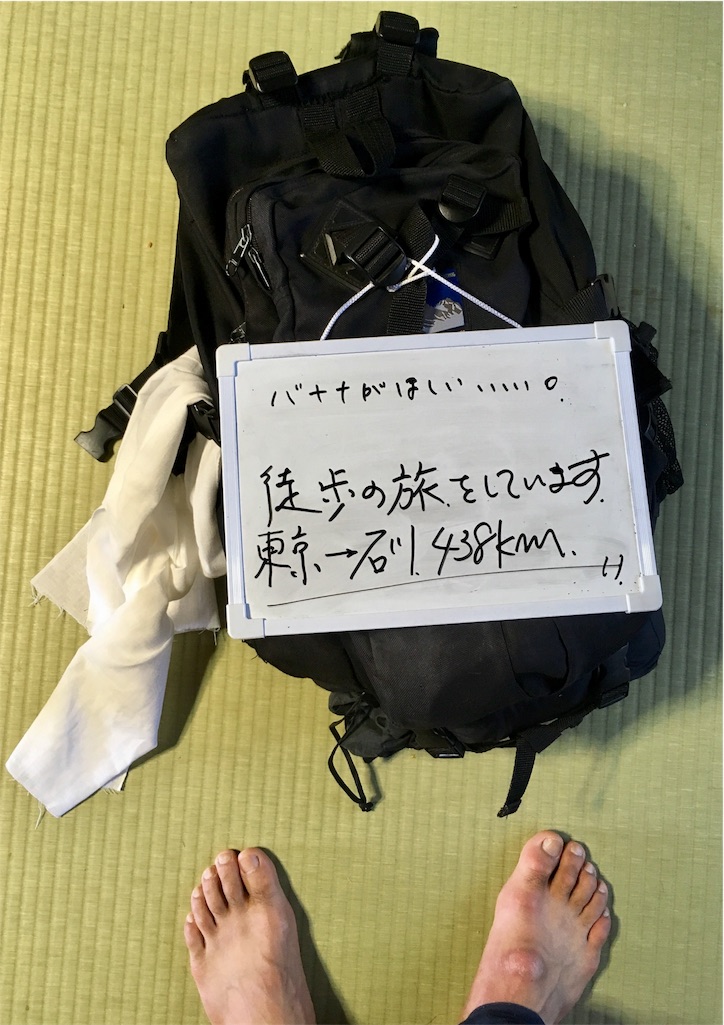 バナナがほしいいいい。
徒歩の旅をしています。
東京→石川 438km.